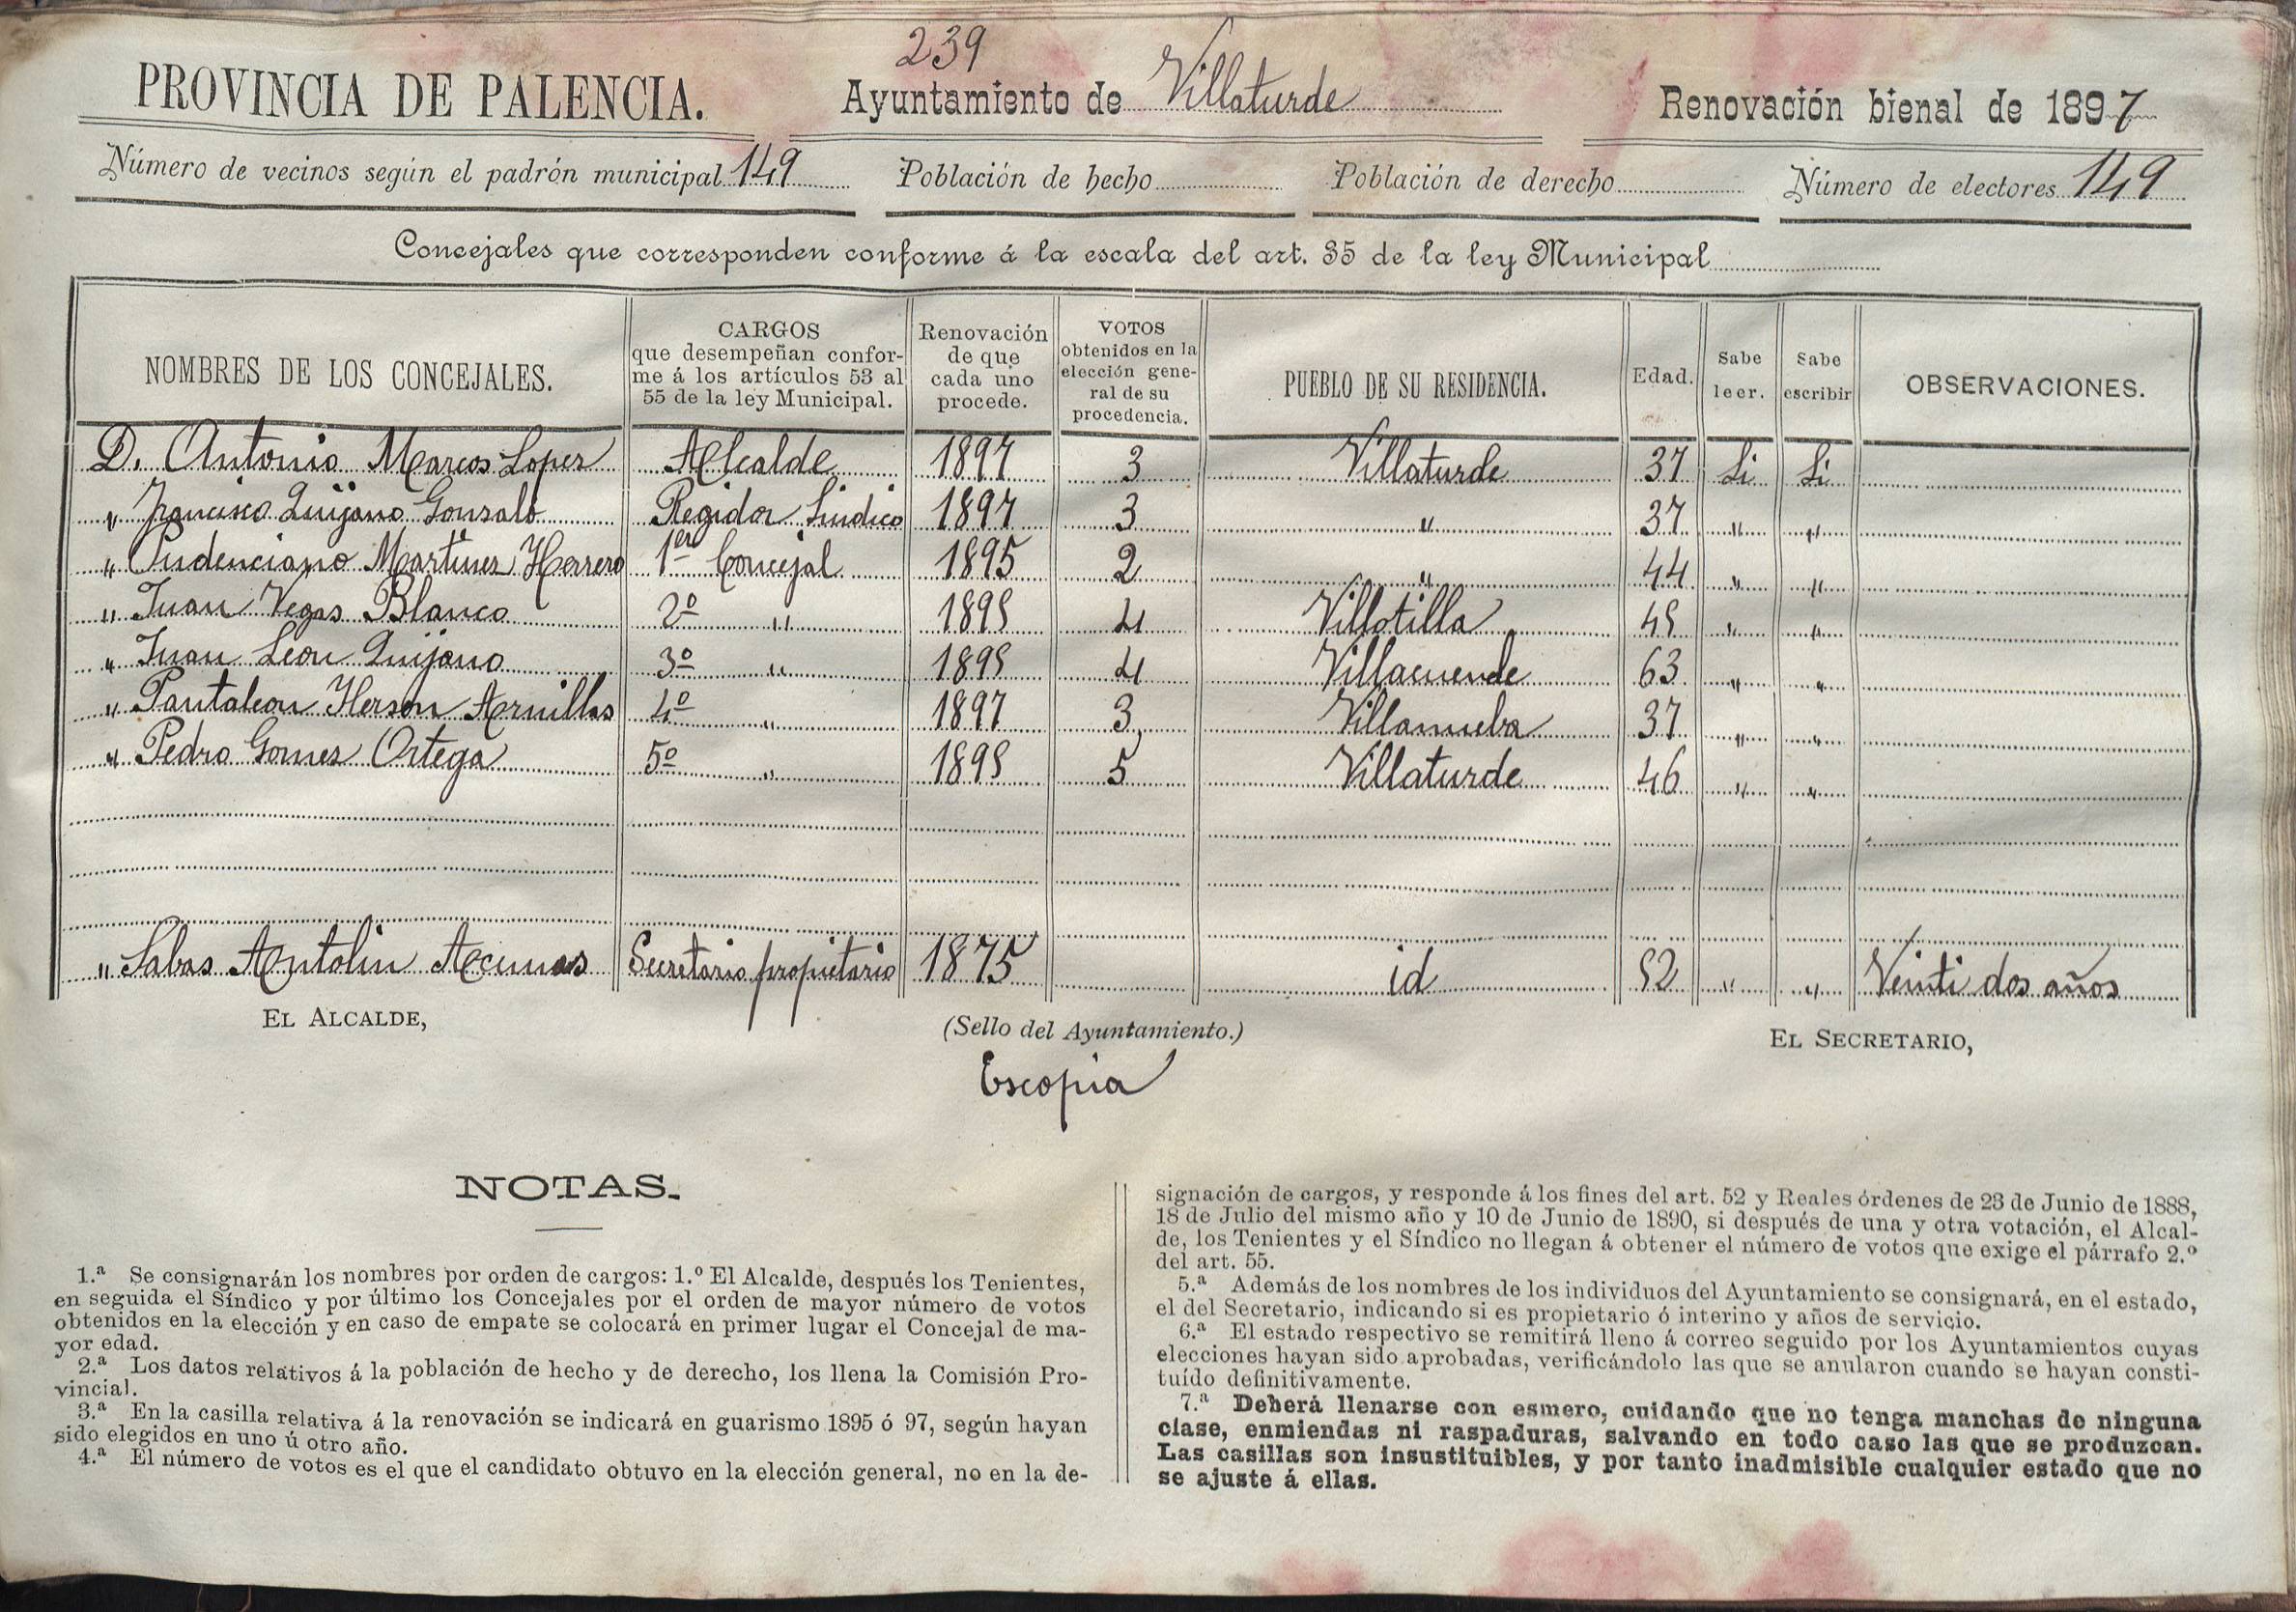 239
PROVINCIA DE PALENCIA. Ayuntamiento de Villaturde Renovación bienal de 1897
Número de vecinos según el padrón municipal 149 Población de hecho Población de derecho Número de electores 149
Concejales que corresponden conforme á la escala del art. 35 de la ley Municipal
NOMBRES DE LOS CONCEJALES. CARGOS que desempeñan confor-me á los artículos 53 al 55 de la ley Municipal. Renovación de que cada uno procede. VOTOS obtenidos en la elección gene-ral de su procedencia. PUEBLO DE SU RESIDENCIA. Edad. Sabe leer. Sabe escribir OBSERVACIONES.
D. Antonio Marcos Lopez Alcalde 1897 3 Villaturde 37 Si Si
" Francisco Quijano Gonzalo Regidor Sindico 1897 3 " 37 " "
" Prudenciano Martinez Herrero 1er Concejal 1895 2 " 44 " "
" Juan Vegas Blanco 2º " 1895 4 Villotilla 45 " "
" Juan Leon Quijano 3º " 1895 4 Villacuende 63 " "
" Pantaleon Herson Arnillas 4º " 1897 3 Villanueba 37 " "
" Pedro Gomez Ortega 5º " 1895 5 Villaturde 46 " "
" Sabas Antolin Secretario propietario 1875 id 52 " " Veinti dos años
EL ALCALDE, (Sello del Ayuntamiento.) EL SECRETARIO,
Escopia
NOTAS.
1.ª Se consignarán los nombres por orden de cargos: 1.º El Alcalde, después los Tenientes,
en seguida el Síndico y por último los Concejales por el orden de mayor número de votos
obtenidos en la elección y en caso de empate se colocará en primer lugar el Concejal de ma-
yor edad.
2.ª Los datos relativos á la población de hecho y de derecho, los llena la Comisión Pro-
vincial.
3.ª En la casilla relativa á la renovación se indicará en guarismo 1895 ó 97, según hayan
sido elegidos en uno ú otro año.
4.ª El número de votos es el que el candidato obtuvo en la elección general, no en la de-
signación de cargos, y responde á los fines del art. 52 y Reales órdenes de 23 de Junio de 1888,
18 de Julio del mismo año y 10 de Junio de 1890, si después de una y otra votación, el Alcal-
de, los Tenientes y el Síndico no llegan á obtener el número de votos que exige el párrafo 2.º
del art. 55.
5.ª Además de los nombres de los individuos del Ayuntamiento se consignará, en el estado,
el del Secretario, indicando si es propietario ó interino y años de servicio.
6.ª El estado respectivo se remitirá lleno á correo seguido por los Ayuntamientos cuyas
elecciones hayan sido aprobadas, verificándolo las que se anularon cuando se hayan consti-
tuído definitivamente.
7.ª Deberá llenarse con esmero, cuidando que no tenga manchas de ninguna
clase, enmiendas ni raspaduras, salvando en todo caso las que se produzcan.
Las casillas son insustituibles, y por tanto inadmisible cualquier estado que no
se ajuste á ellas.